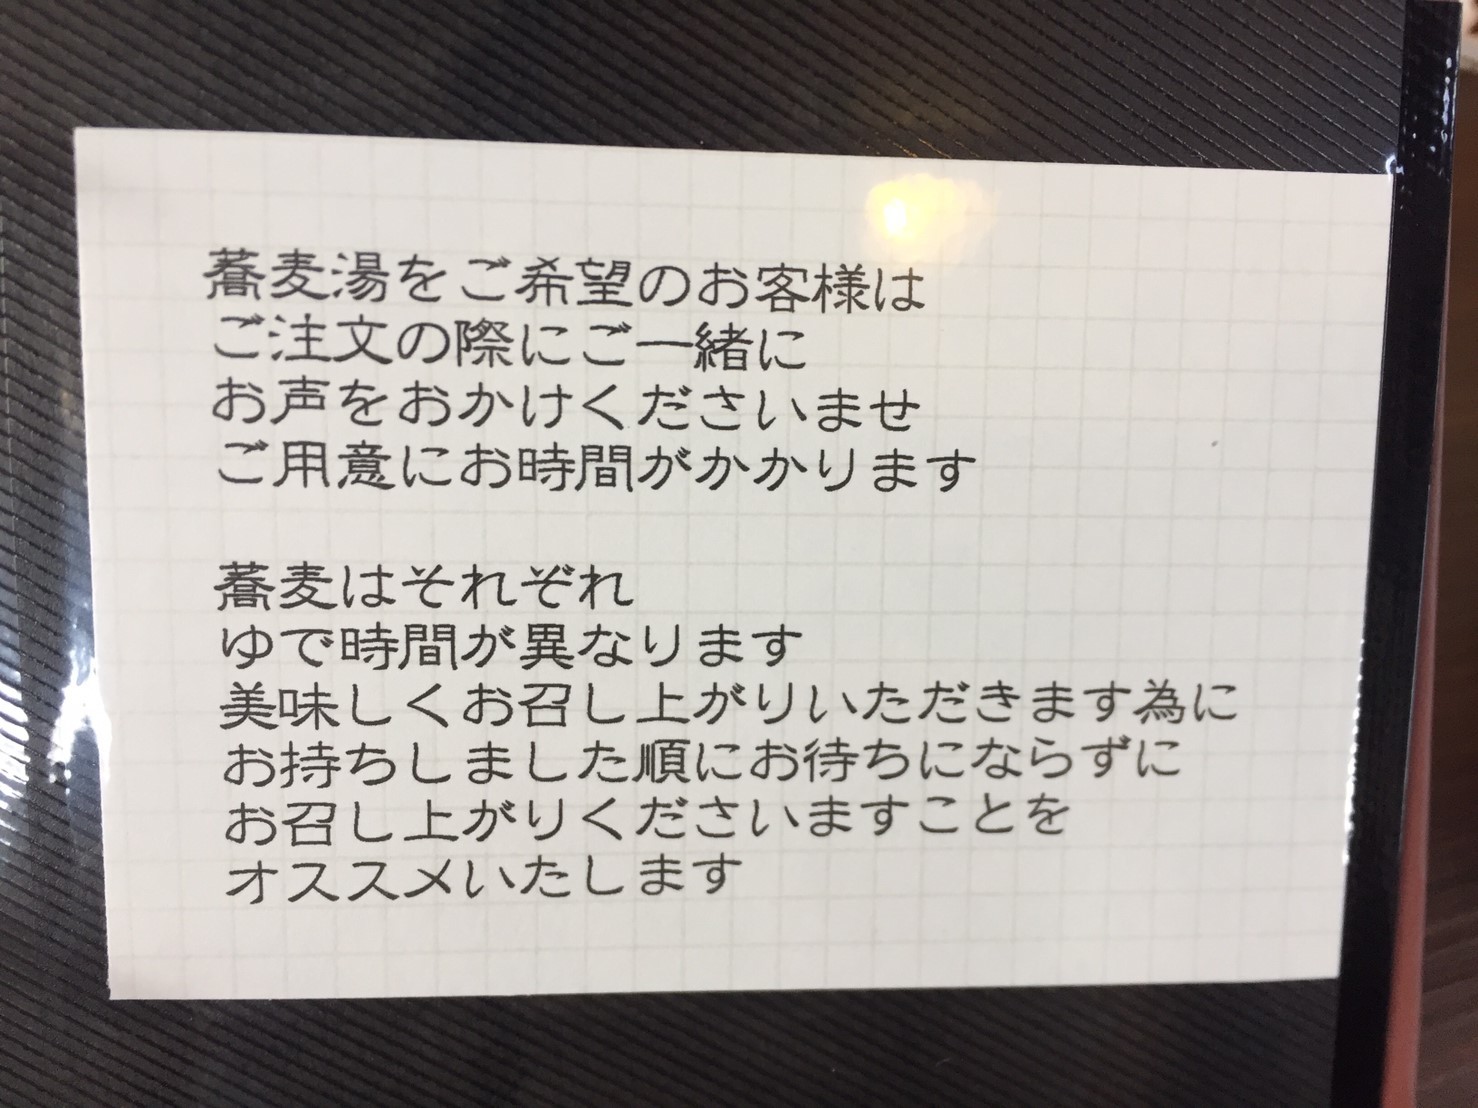 蕎麦湯をご希望のお客様は
ご注文の際にご一緒に
お声をおかけくださいませ
ご用意にお時間がかかります
蕎麦はそれぞれ
ゆで時間が異なります
美味しくお召し上がりいただきます為に
お持ちしました順にお待ちにならずに
お召し上がりくださいますことを
オススメいたします